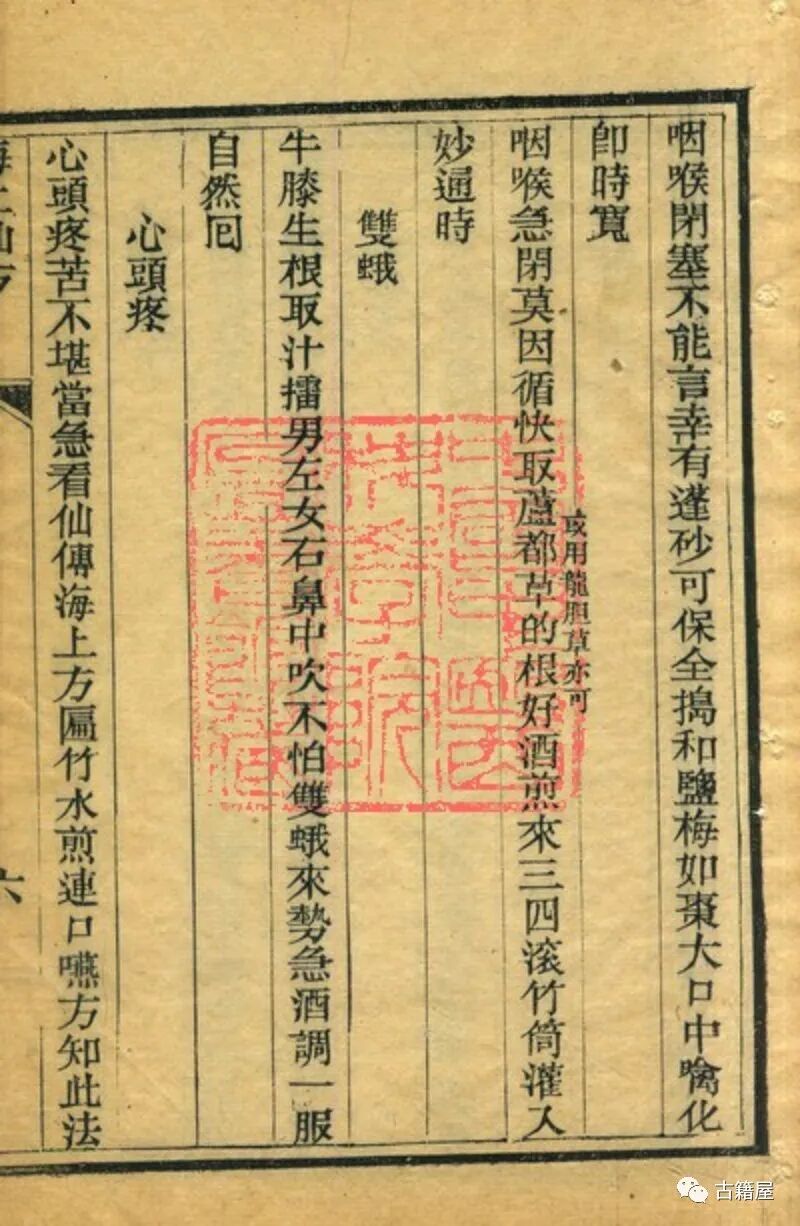 咽喉閉塞不能言幸有蓬砂可保全搗和鹽梅如棗大口中噙化
卽時寬
咽喉急閉莫因循快取蘆都草的根好酒煎來三四滚竹筒灌入
或用龍胆草亦可
妙通時
雙蛾
牛膝生根取汁擂男左女右鼻中吹不怕雙蛾來勢急酒調一服
自然囘
心頭疼
心頭疼苦不堪當急看仙傳海上方匾竹水煎連口嚥方知此法
海上仙方
六
古籍屋